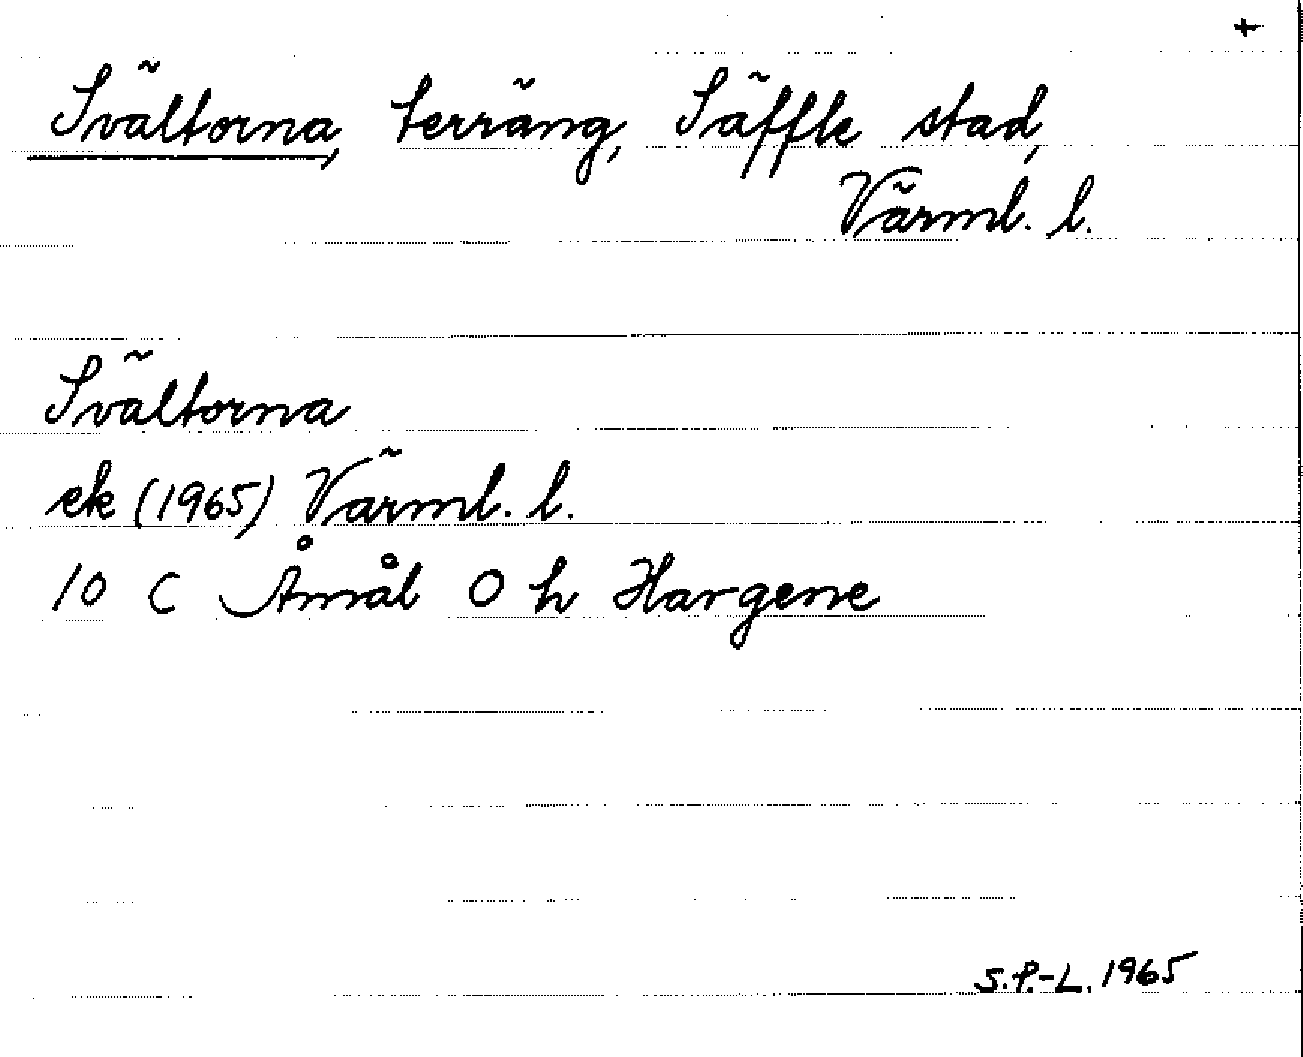 +
Svältorna, terräng, Säffle stad,
Värml. l.
Svältorna
ek (1965) Värml. l.
10 C Åmål O h Hargene
S.P.-L. 1965